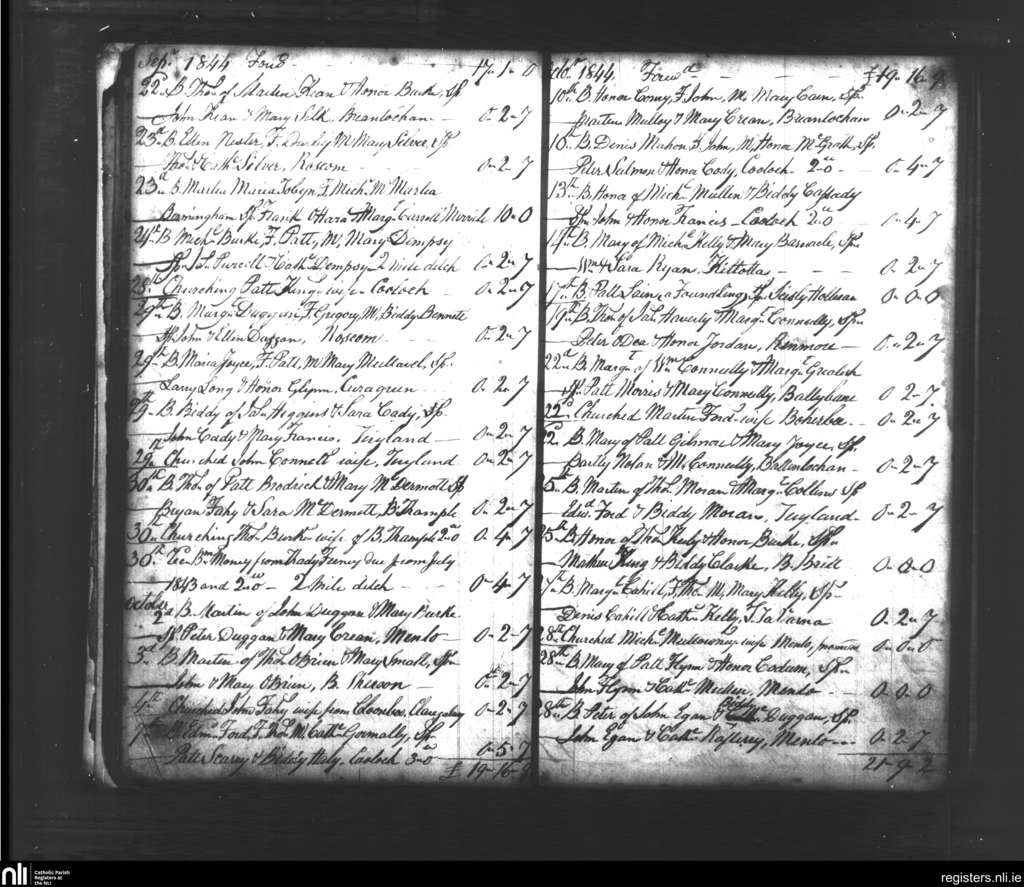 Sepr. 1844 Ford 17 " 1 " 0
22nd B. Thos. of Martin Kean & Honor Burke, Sp.
John Kean & Mary Silk, Breanlochan - 0 " 2 " 7
23d B. Ellen Nester, F. M. Mary Silver Sp
Thos. & Cathe. Silver, Roscom - 0 " 2 " 7
23d B. Maria Tobyn, F. Michl. M.
Birmingham Sp. Frank O'Hara & Margt. Carroll 10 " 0
24th B. Michl. Burke, F. Patt, M. Mary Dempsy
Sp. Purcell & Cathe. Dempsy 2 Mile ditch 0 " 2 " 7
Churching Patt King's wife Cooloch 0 " 2 " 7
29th B. Margt. Duggan, F. Gregory, M. Biddy Bennett
Sp. John & Ellen Duggan, Roscom - 0 " 2 " 7
29th B. Maria Joyce, F. Patt, M. Mary Mullarel, Sp.
Larry Long & Honor Glynn, Curagreen - 0 " 2 " 7
29th B. Biddy of Jas. Higgins & Sara Cady, Sp.
John Cady & Mary Francis, Teryland - 0 " 2 " 7
29th Churched John Connell wife, Teryland 0 " 2 " 7
30th B. Thos. of Patt Brodrick & Mary McDermott Sp
Bryan Fahy & Sara McDermott, B. Thample 0 " 2 " 7
30th Churching Thos. Burke wife of B. Thample 2 " 0 0 " 4 " 7
30th Money from Thady Feeney due from July
1843 and 2 " 0 - 2 Mile ditch 0 " 4 " 7
October
2d B. Martin of John Duggan & Mary Burke
Sp. Peter Duggan & Mary Crean, Menlo - 0 " 2 " 7
3d B. Martin of Thos. O'Brien & Mary Small, Sp.
John & Mary O'Brien, B. - 0 " 2 " 7
4th Churched John Fahy wife from 0 " 2 " 7
7th B. Ford, F. Thos. M. Cathe. Gormally, Sp.
Patt Scarry & Biddy Haly, Cooloch 3 " 0 0 " 5 " 7
£ 19 " 16 " 9
Octr. 1844 Forwd £ 19 " 16 " 9
10th B. Honor Comy, F. John, M. Mary Cain, Sp.
Martin Mulloy & Mary Crean, Breanlochan 0 " 2 " 7
10th B. Denis Mahon F. John, M. Honor McGrath, Sp.
Peter Silmon & Honor Cody, Cooloch 2 " 0 - 0 " 4 " 7
13th B. Honor of Michl. Mullen & Biddy Cassady
Sp. John & Honor Francis - Cooloch 2 " 0 0 " 4 " 7
14th B. Mary of Michl. Kelly & Mary Barnacle, Sp.
Wm. & Sara Ryan, Kiltolla - 0 " 2 " 7
17th B. Patt a Foundling, Sp. Sisly Holleran 0 " 0 " 0
19th B. Thos. of Jas. Haverty & Margt. Connelly, Sp.
Peter O'Dea & Honor Jordan, Renmore - 0 " 2 " 7
22d B. Margt. of Wm. Connelly & Margt. Grealish
Sp. Patt Morris & Mary Connelly, Ballybane 0 " 2 " 7
22d Churched Martin Ford wife Boherboa - 0 " 2 " 7
22 B. Mary of Patt Gilmore & Mary Joyce, Sp.
Bartly Nolan & M. Connelly, Ballinlochan - 0 " 2 " 7
25th B. Martin of Thos. Moran & Margt. Collins Sp
Edwd. Ford & Biddy Moran, Teryland 0 " 2 " 7
25th B. Honor of Thos. & Honor Burke, Sp.
Mathew King & Biddy Clarke, B. Britt 0 " 0 " 0
27th B. Margt. Cahill, F. Thos. M. Mary Kelly, Sp.
Denis Cahill & Cathe. Kelly, 0 " 2 " 7
28th Churched Michl. Mullowney wife Menlo, promise 0 " 0 " 0
28th B. Mary of Patt Flynn & Honor Codum, Sp.
John Flynn & Cathe. Menlo - 0 " 0 " 0
28th B. Peter of John Egan & Biddy Duggan, Sp.
John Egan & Cathe. Rafferry, Menlo - 0 " 2 " 7
21 " 9 " 2
nli
Catholic Parish
Registers at
the NLI
registers.nli.ie